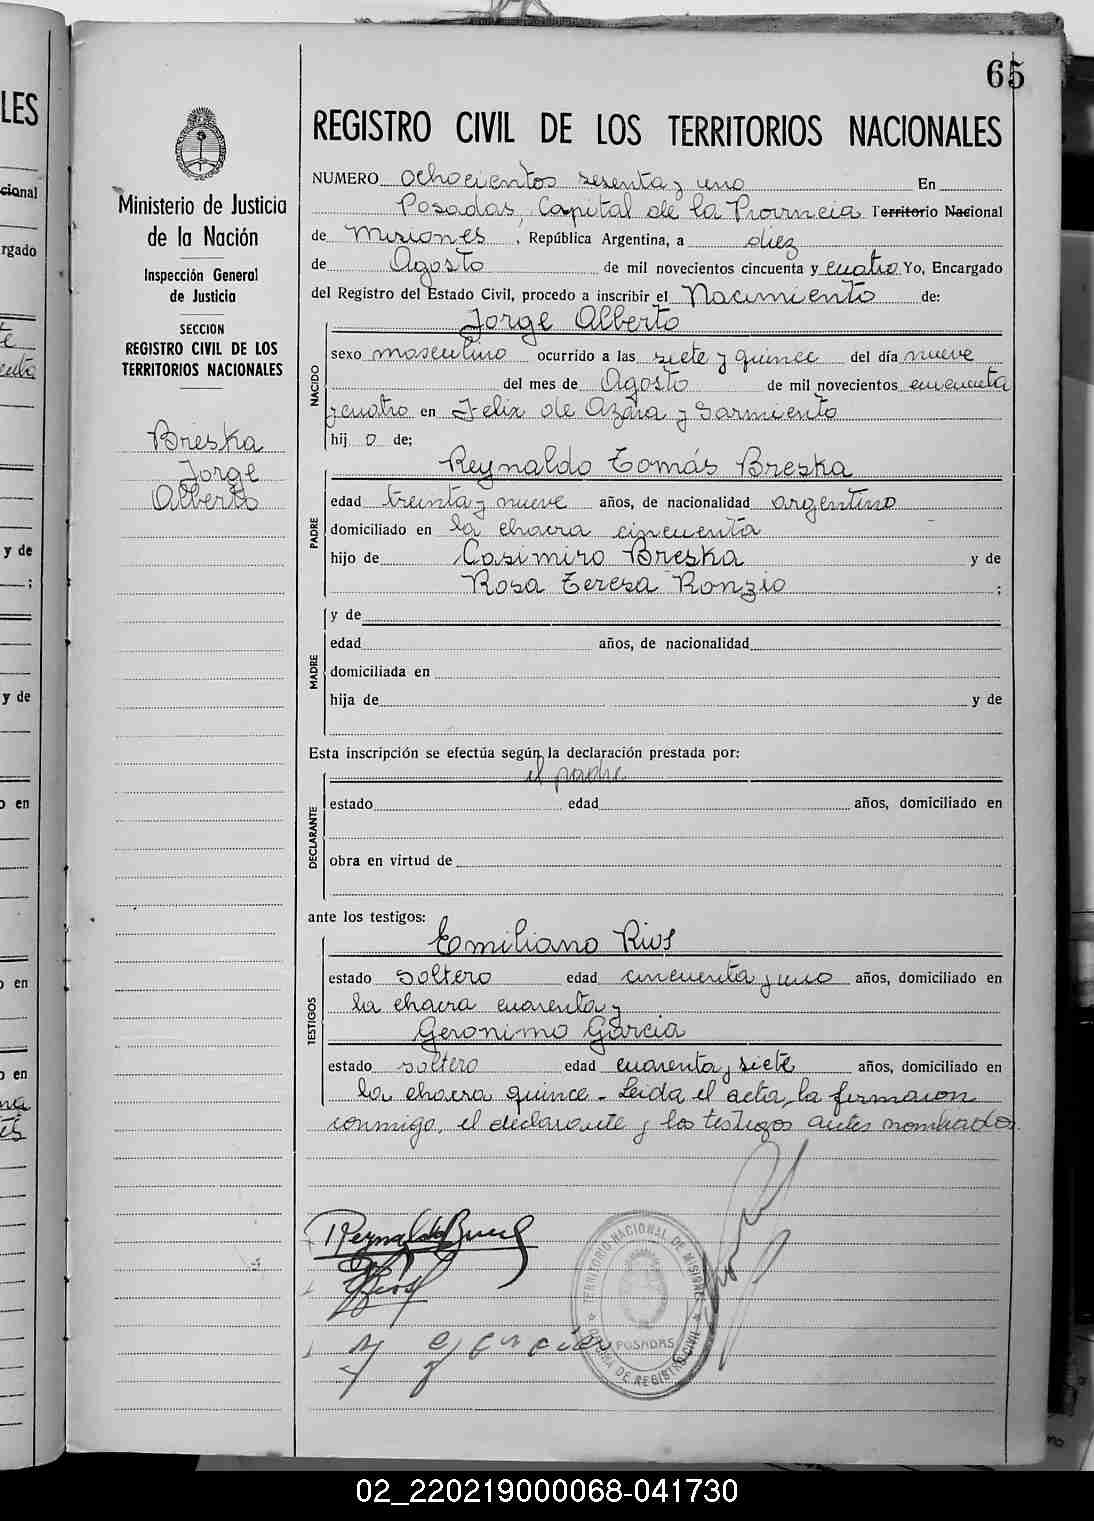 65
REGISTRO CIVIL DE LOS TERRITORIOS NACIONALES
Ministerio de Justicia
de la Nación
Inspección General
de Justicia
SECCION
REGISTRO CIVIL DE LOS
TERRITORIOS NACIONALES
Breska
Jorge
Alberto
NUMERO ochocientos sesenta y uno En
Posadas, Capital de la Provincia Territorio Nacional
de Misiones, República Argentina, a diez
de Agosto de mil novecientos cincuenta y cuatro Yo, Encargado
del Registro del Estado Civil, procedo a inscribir el Nacimiento de:
NACIDO
Jorge Alberto
sexo masculino ocurrido a las siete y quince del día nueve
del mes de Agosto de mil novecientos cincuenta
y cuatro en Felix de Azara y Sarmiento
hij o de:
PADRE
Reynaldo Tomás Breska
edad treinta y nueve años, de nacionalidad argentino
domiciliado en la chacra cincuenta
hijo de Casimiro Breska y de
Rosa Teresa Ronzio ;
MADRE
y de
edad años, de nacionalidad
domiciliada en
hija de y de
Esta inscripción se efectúa según la declaración prestada por:
DECLARANTE
el padre
estado edad años, domiciliado en
obra en virtud de
ante los testigos:
TESTIGOS
Emiliano Rios
estado soltero edad cincuenta y uno años, domiciliado en
la chacra cuarenta y
Geronimo Garcia
estado soltero edad cuarenta y siete años, domiciliado en
la chacra quince. Leida el acta, la firmaron
conmigo, el declarante y los testigos antes nombrados.
TERRITORIO NACIONAL DE MISIONES
POSADAS
OFICINA DE REGISTRO CIVIL
LES
cional
rgado
y de
;
y de
o en
o en
o en
02_220219000068-041730